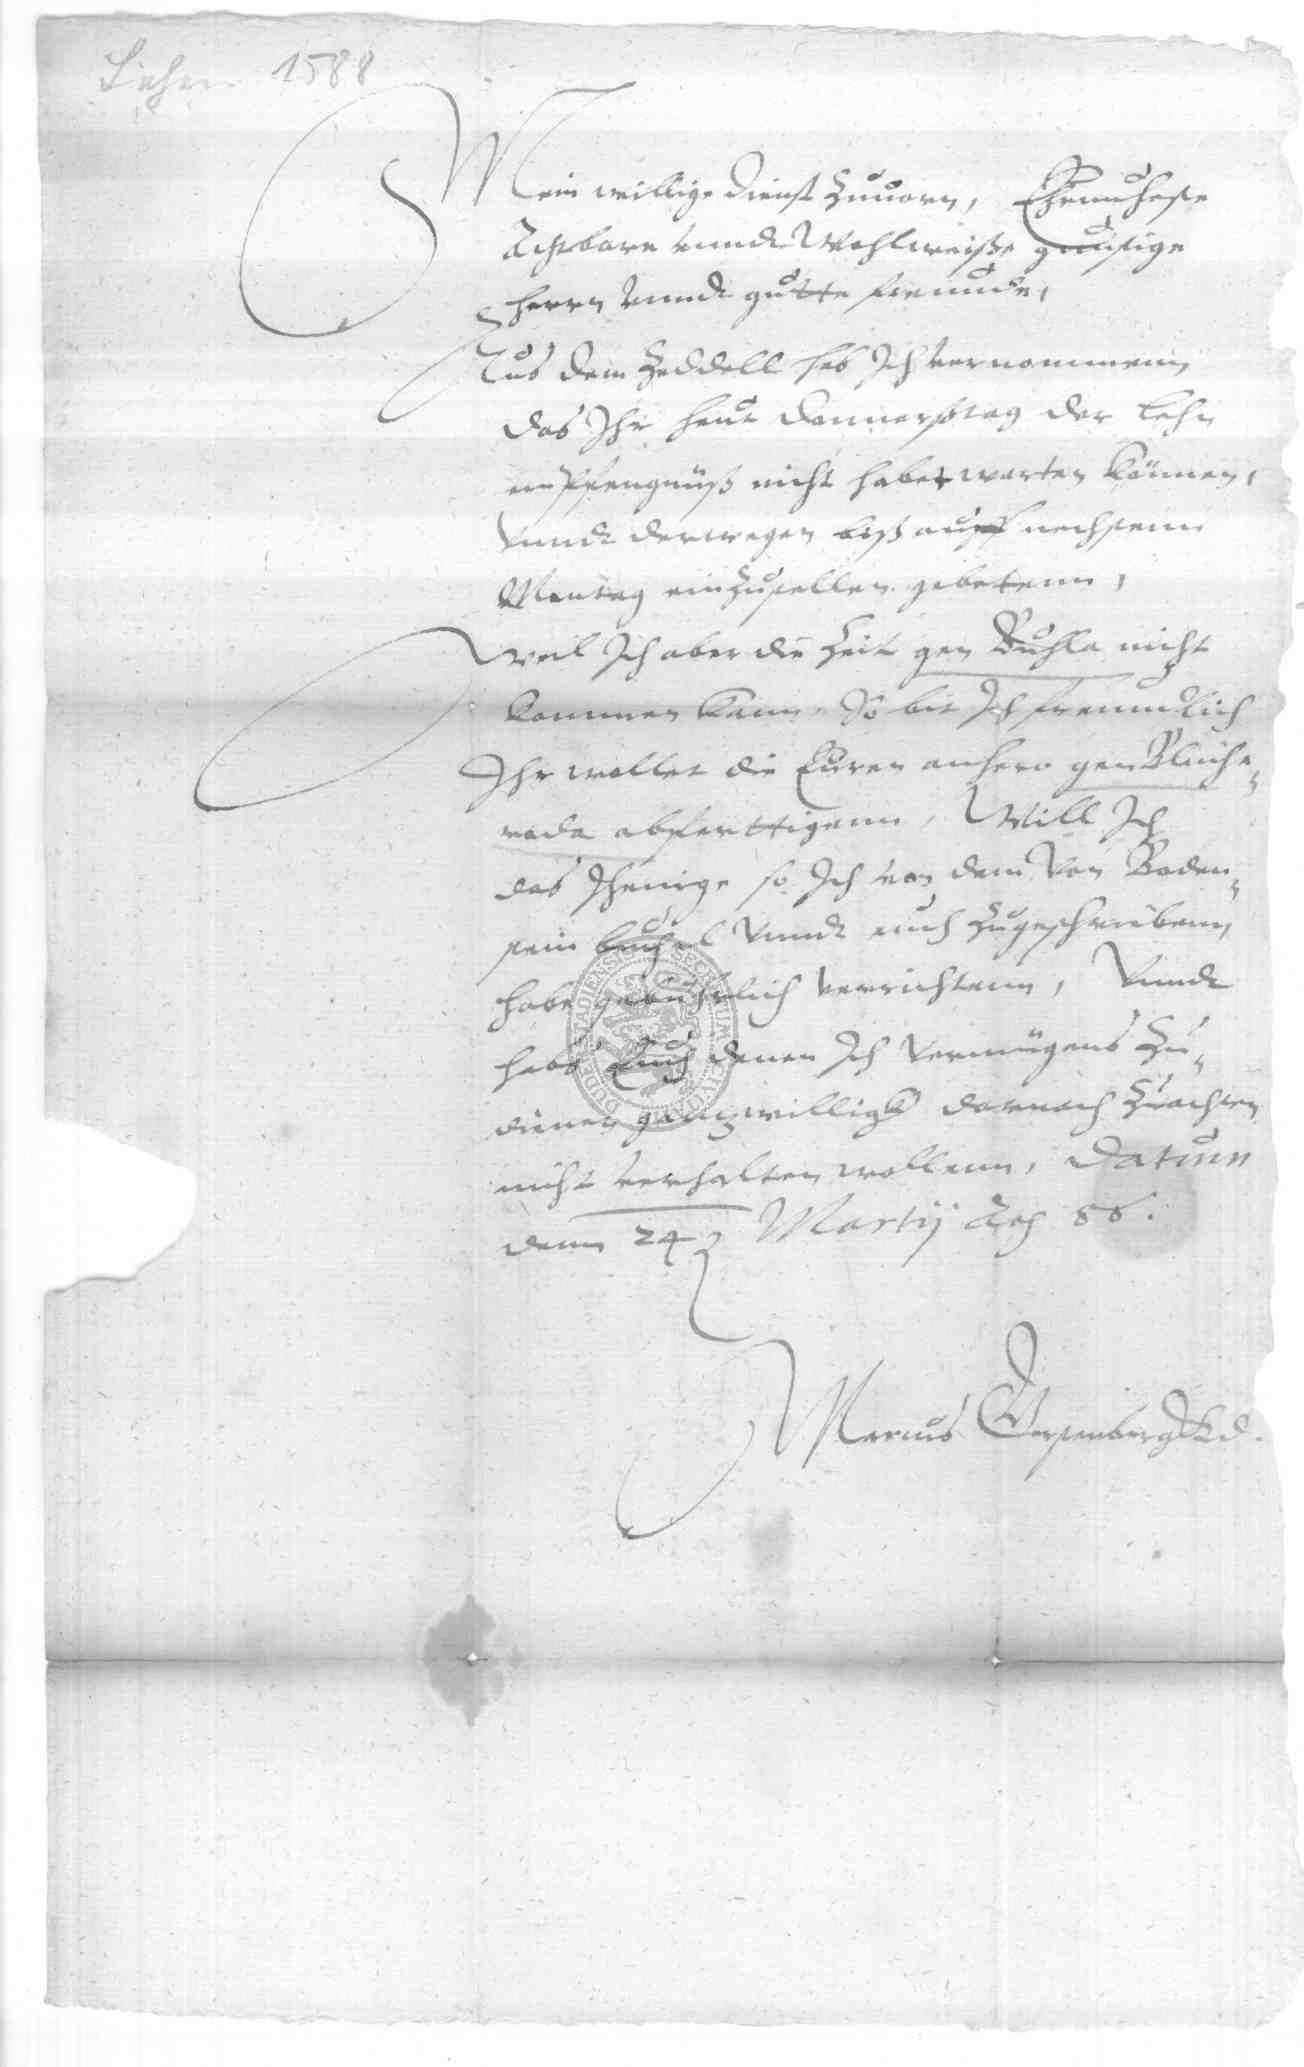 Lehen 1588
Mein willige dienst zuuorn, Ehrnuheste
Achtbare vnnd Wohlweiße günstige
herrn vnnd gutte freunde,
Aus dem Zeddell hab Ich vernommenn
das Ihr heut Donnerstag der Lehn
empfengnüß nicht habet warten können,
vnnd derwegen biß auff nechstenn
Montag einzustellen gebetenn,
Weil Ich aber die Zeit gen Buhla nicht
kommen kann, So bit Ich freundlich
Ihr wollet die Euren anhero gen Bleiche-
roda abferttigenn, Will Ich
das Jhenige so Ich von dem von Boden-
stein beuehl vnnd euch zugeschriebenn
habe gebührlich verrichtenn, Vnnd
habs Euch denen Ich vermügens zu-
dienen gantzwilligk darnach zuachten
nicht verhalten wollenn, Datum
denn 24 Martij Aō 88.
Marcus Gerstenbergk D.
SECRETUM CIVITATIS DUDERSTADIENSIS